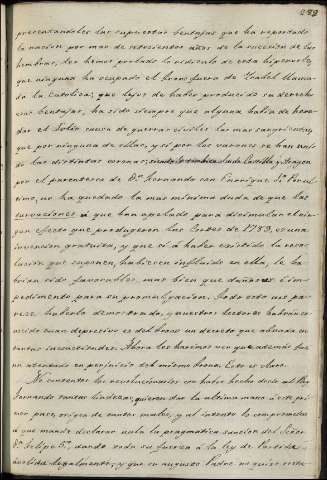 289
precentandoles las supuestas ventajas que ha reportado
la nacion por mas de setecientos años de la sucesion de las
hembras; les hemos probado lo ridiculo de esta hiperbole,
que ninguna ha ocupado el trono fuera de Ysabel llama-
da la Catolica, que lejos de haber producido su derecho
esas ventajas, ha sido siempre que alguna habia de here-
dar el Solio causa de guerras civiles las mas sangrientas,
que por ninguna de ellas, y si por los varones se han uni-
do las distintas coronas, Castilla y Aragon
por el parentesco de Dn. Fernando con Enrrique
no ha quedado la mas minima duda de que las
razones á que han apelado para disimular el
efecto que produgeron las Cortes de 1789, es una
invencion gratuita, y que si á haber existido la revo-
lucion que suponen, hubiesen influido en ella, le ha-
brian sido favorables, mas bien que dañosas é im-
pedimento para su promulgacion. Todo esto nos pa-
rece haberlo demostrado, y nuestros lectores habrán co-
nocido cuan depresivo es del trono un decreto que abunda en
tantas inexactitudes. Ahora les haremos ver que además fue
un atentado en perjuicio del mismo trono. Esto es claro.
No contentos los revolucionarios con haber hecho decir al Rey
Fernando tantas lindezas, quieren dar la ultima mano á este pri-
mor para, origen de tantos males, y al intento le comprometen
á que mande declarar nula la pragmatica sancion del Señor
Dn. Felipe 5º, dando toda su fuerza á la ley de Partida
abolida legalmente, y que su augusto Padre no quiso resta-